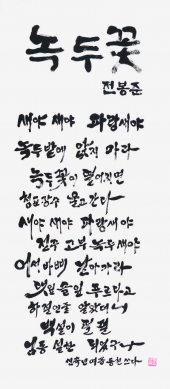 녹두꽃
전봉준
새야 새야 파랑새야
녹두밭에 앉지 마라
녹두꽃이 떨어지면
청포장수 울고 간다
새야 새야 파랑새야
전주 고부 녹두새야
어서 바삐 날아가라
댓잎 솔잎 푸르다고
하절인줄 알았더니
백설이 펄펄
엄동설한 되었구나